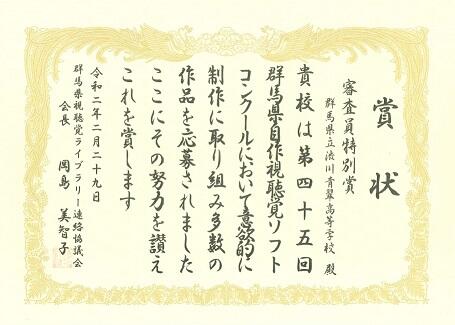 賞状
審査員特別賞
群馬県立渋川青翠高等学校 殿
貴校は第四十五回
群馬県自作視聴覚ソフト
コンクールにおいて意欲的に
制作に取り組み多数の
作品を応募されました
ここにその努力を讃え
これを賞します
令和二年二月二十九日
群馬県視聴覚ライブラリー連絡協議会
会長 岡島 美智子